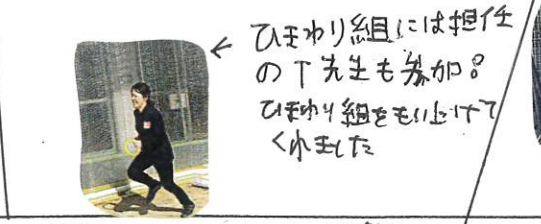 ひまわり組には担任
のT先生も参加!
ひまわり組をもり上げて
くれました